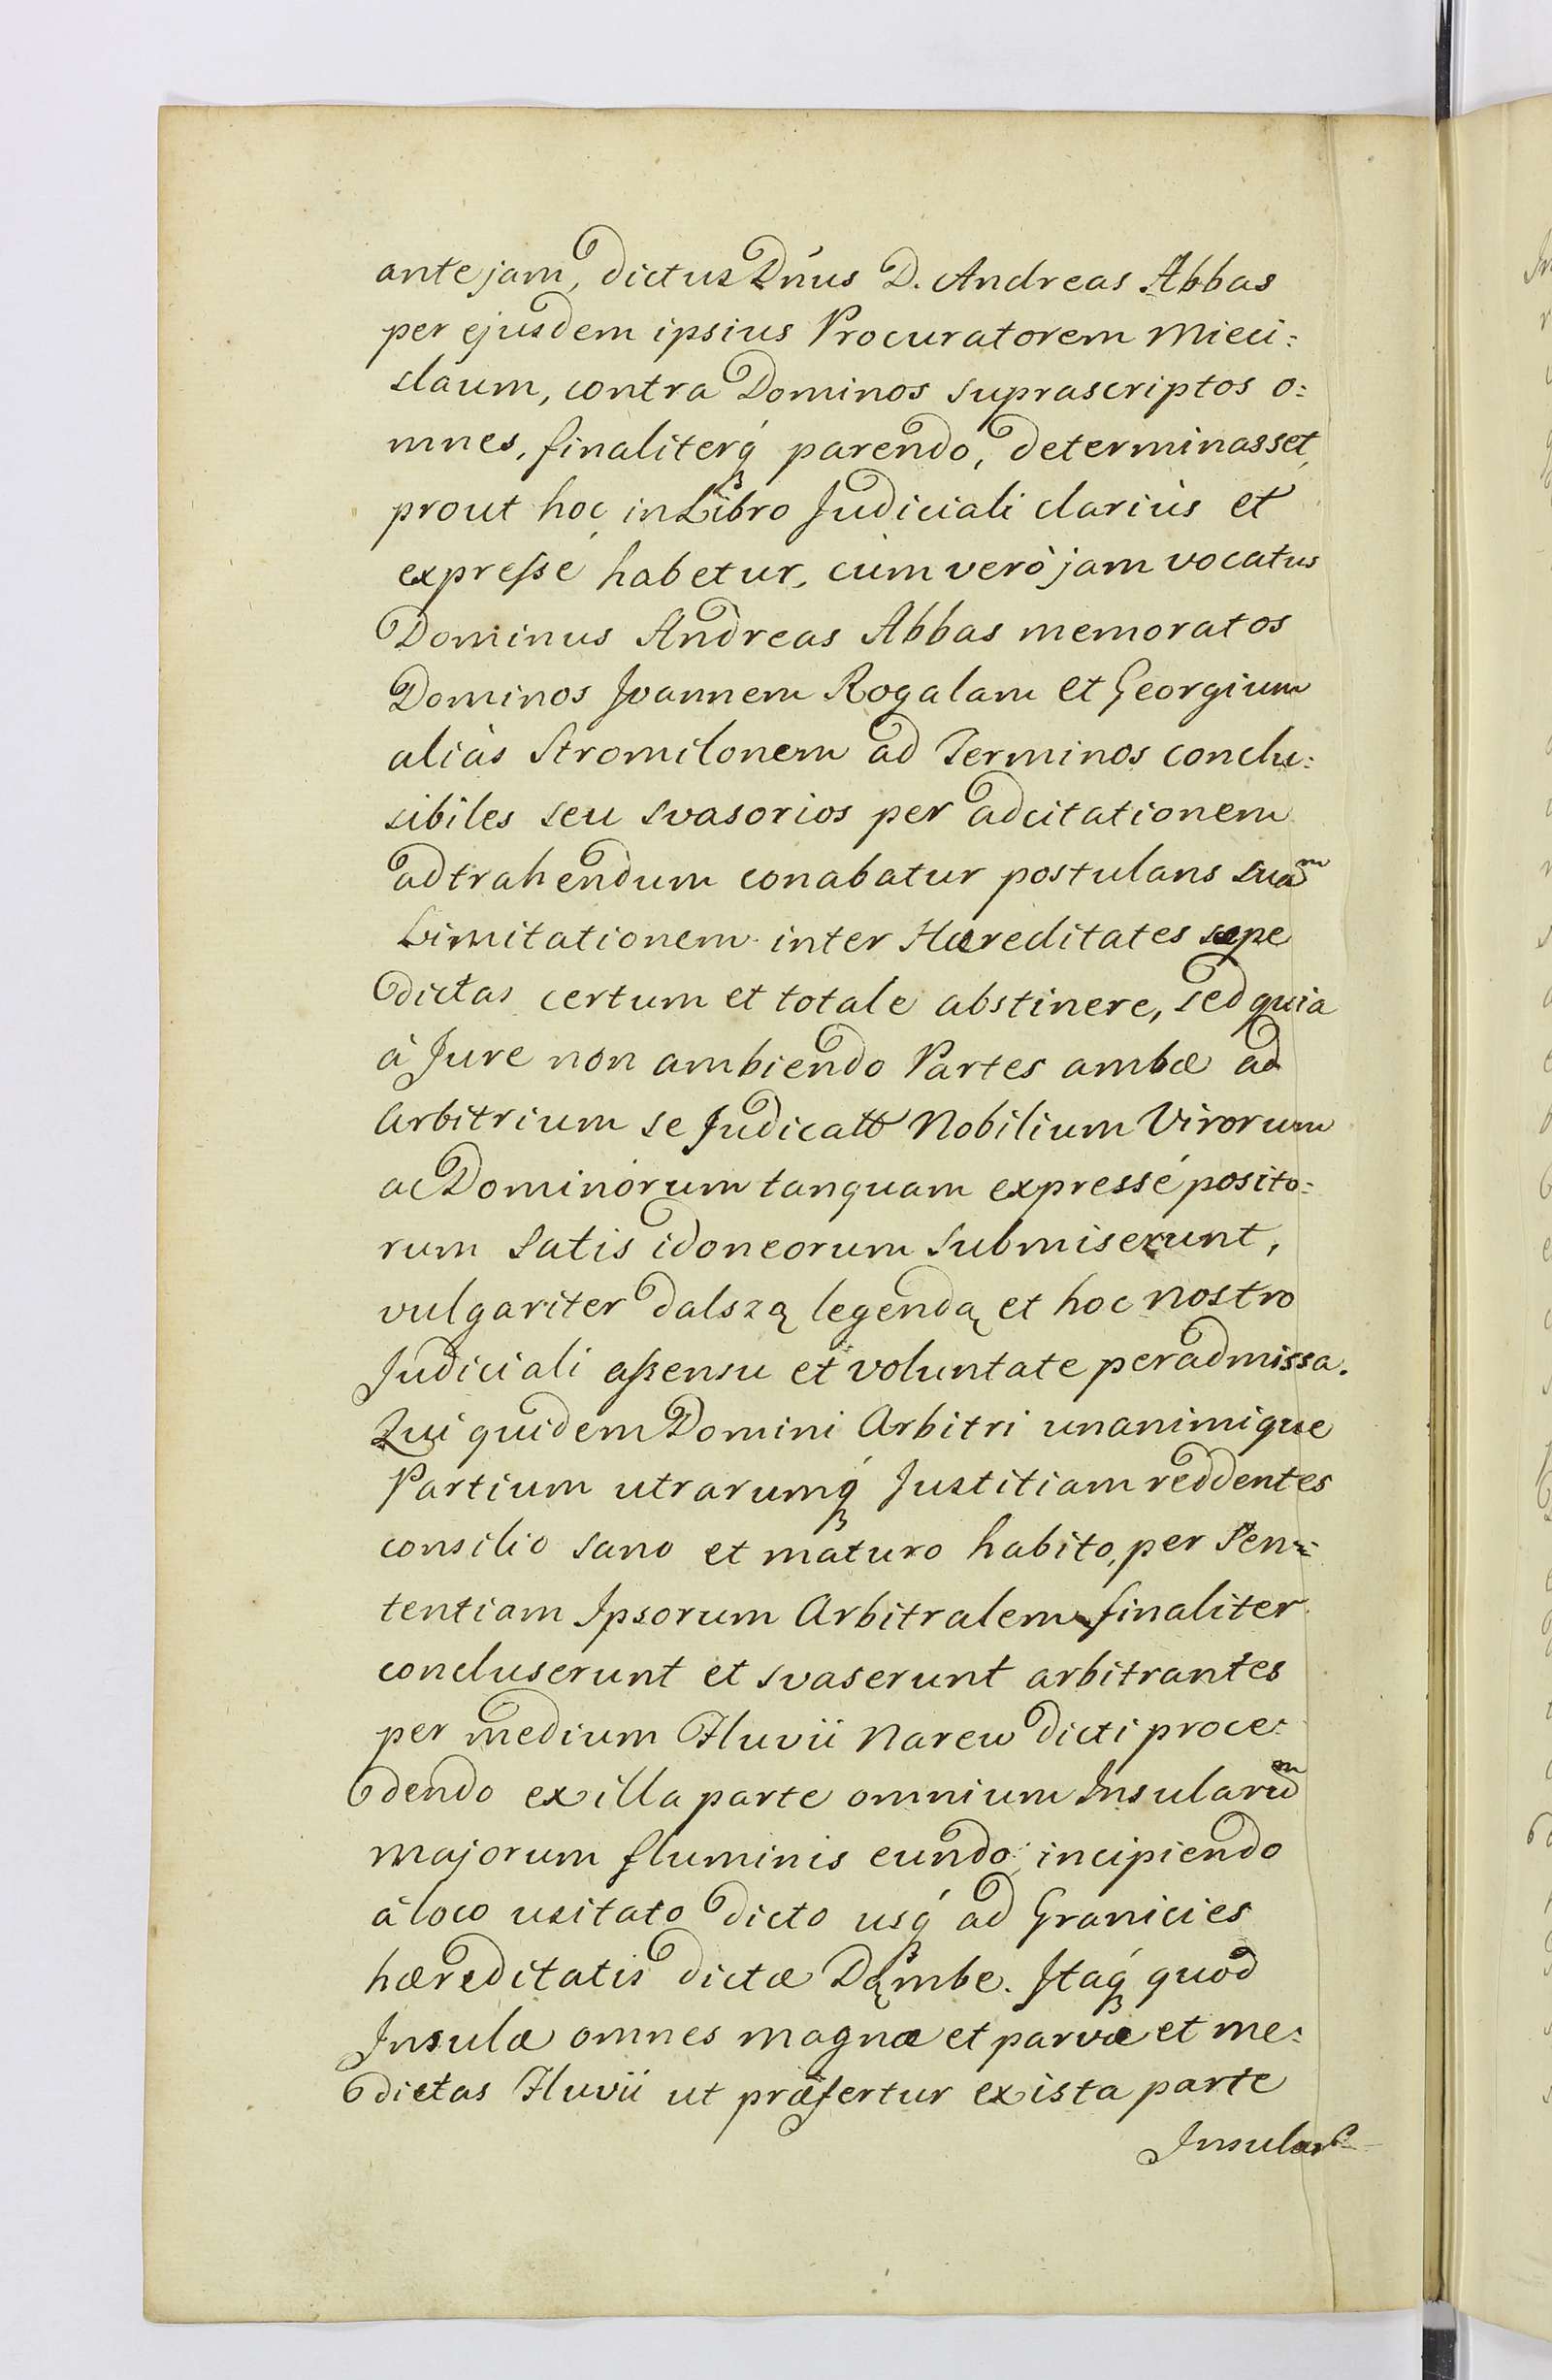 ante jam, dictus Dñus D. Andreas Abbas
per ejusdem ipsius Procuratorem Mieci:
slaum, contra Dominos suprascriptos o:
mnes, finaliterq́ parendo, determinasset,
prout hoc in Libro Judiciali clariùs et
expressé habetur, cùm verò jam vocatus
Dominus Andreas Abbas memoratos
Dominos Joannem Rogalam et Georgium
aliàs Stromilonem ad Terminos conclu:
sibiles seu svasorios per adcitationem
adtrahendum conabatur postulans suam
Limitationem inter Hæreditates sæpe
dictas certum et totale abstinere, sed quia
à Jure non ambiendo Partes ambæ ad
Arbitrium se Nobilium Virorum
ac Dominorum tanquam expressé posito:
rum satis idoneorum submiserunt,
vulgariter dalszą legendą et hoc nostro
Judiciali assensu et voluntate peradmissa.
Qui quidem Domini Arbitri unanimique
Partium utrarumq́ Justitiam reddentes
consilio sano et maturo habito, per Sen:
tentiam Ipsorum Arbitralem finaliter
concluserunt et svaserunt arbitrantes
per medium Fluvii Narew dicti proce:
dendo ex illa parte omnium Insularum
majorum fluminis eundo incipiendo
à loco usitato dicto usq́ ad Granicies
hæreditatis dictæ Dąmbe. Itaq́ quod
Insulæ omnes magnæ et parvæ et me:
dietas Fluvii ut præfertur ex ista parte